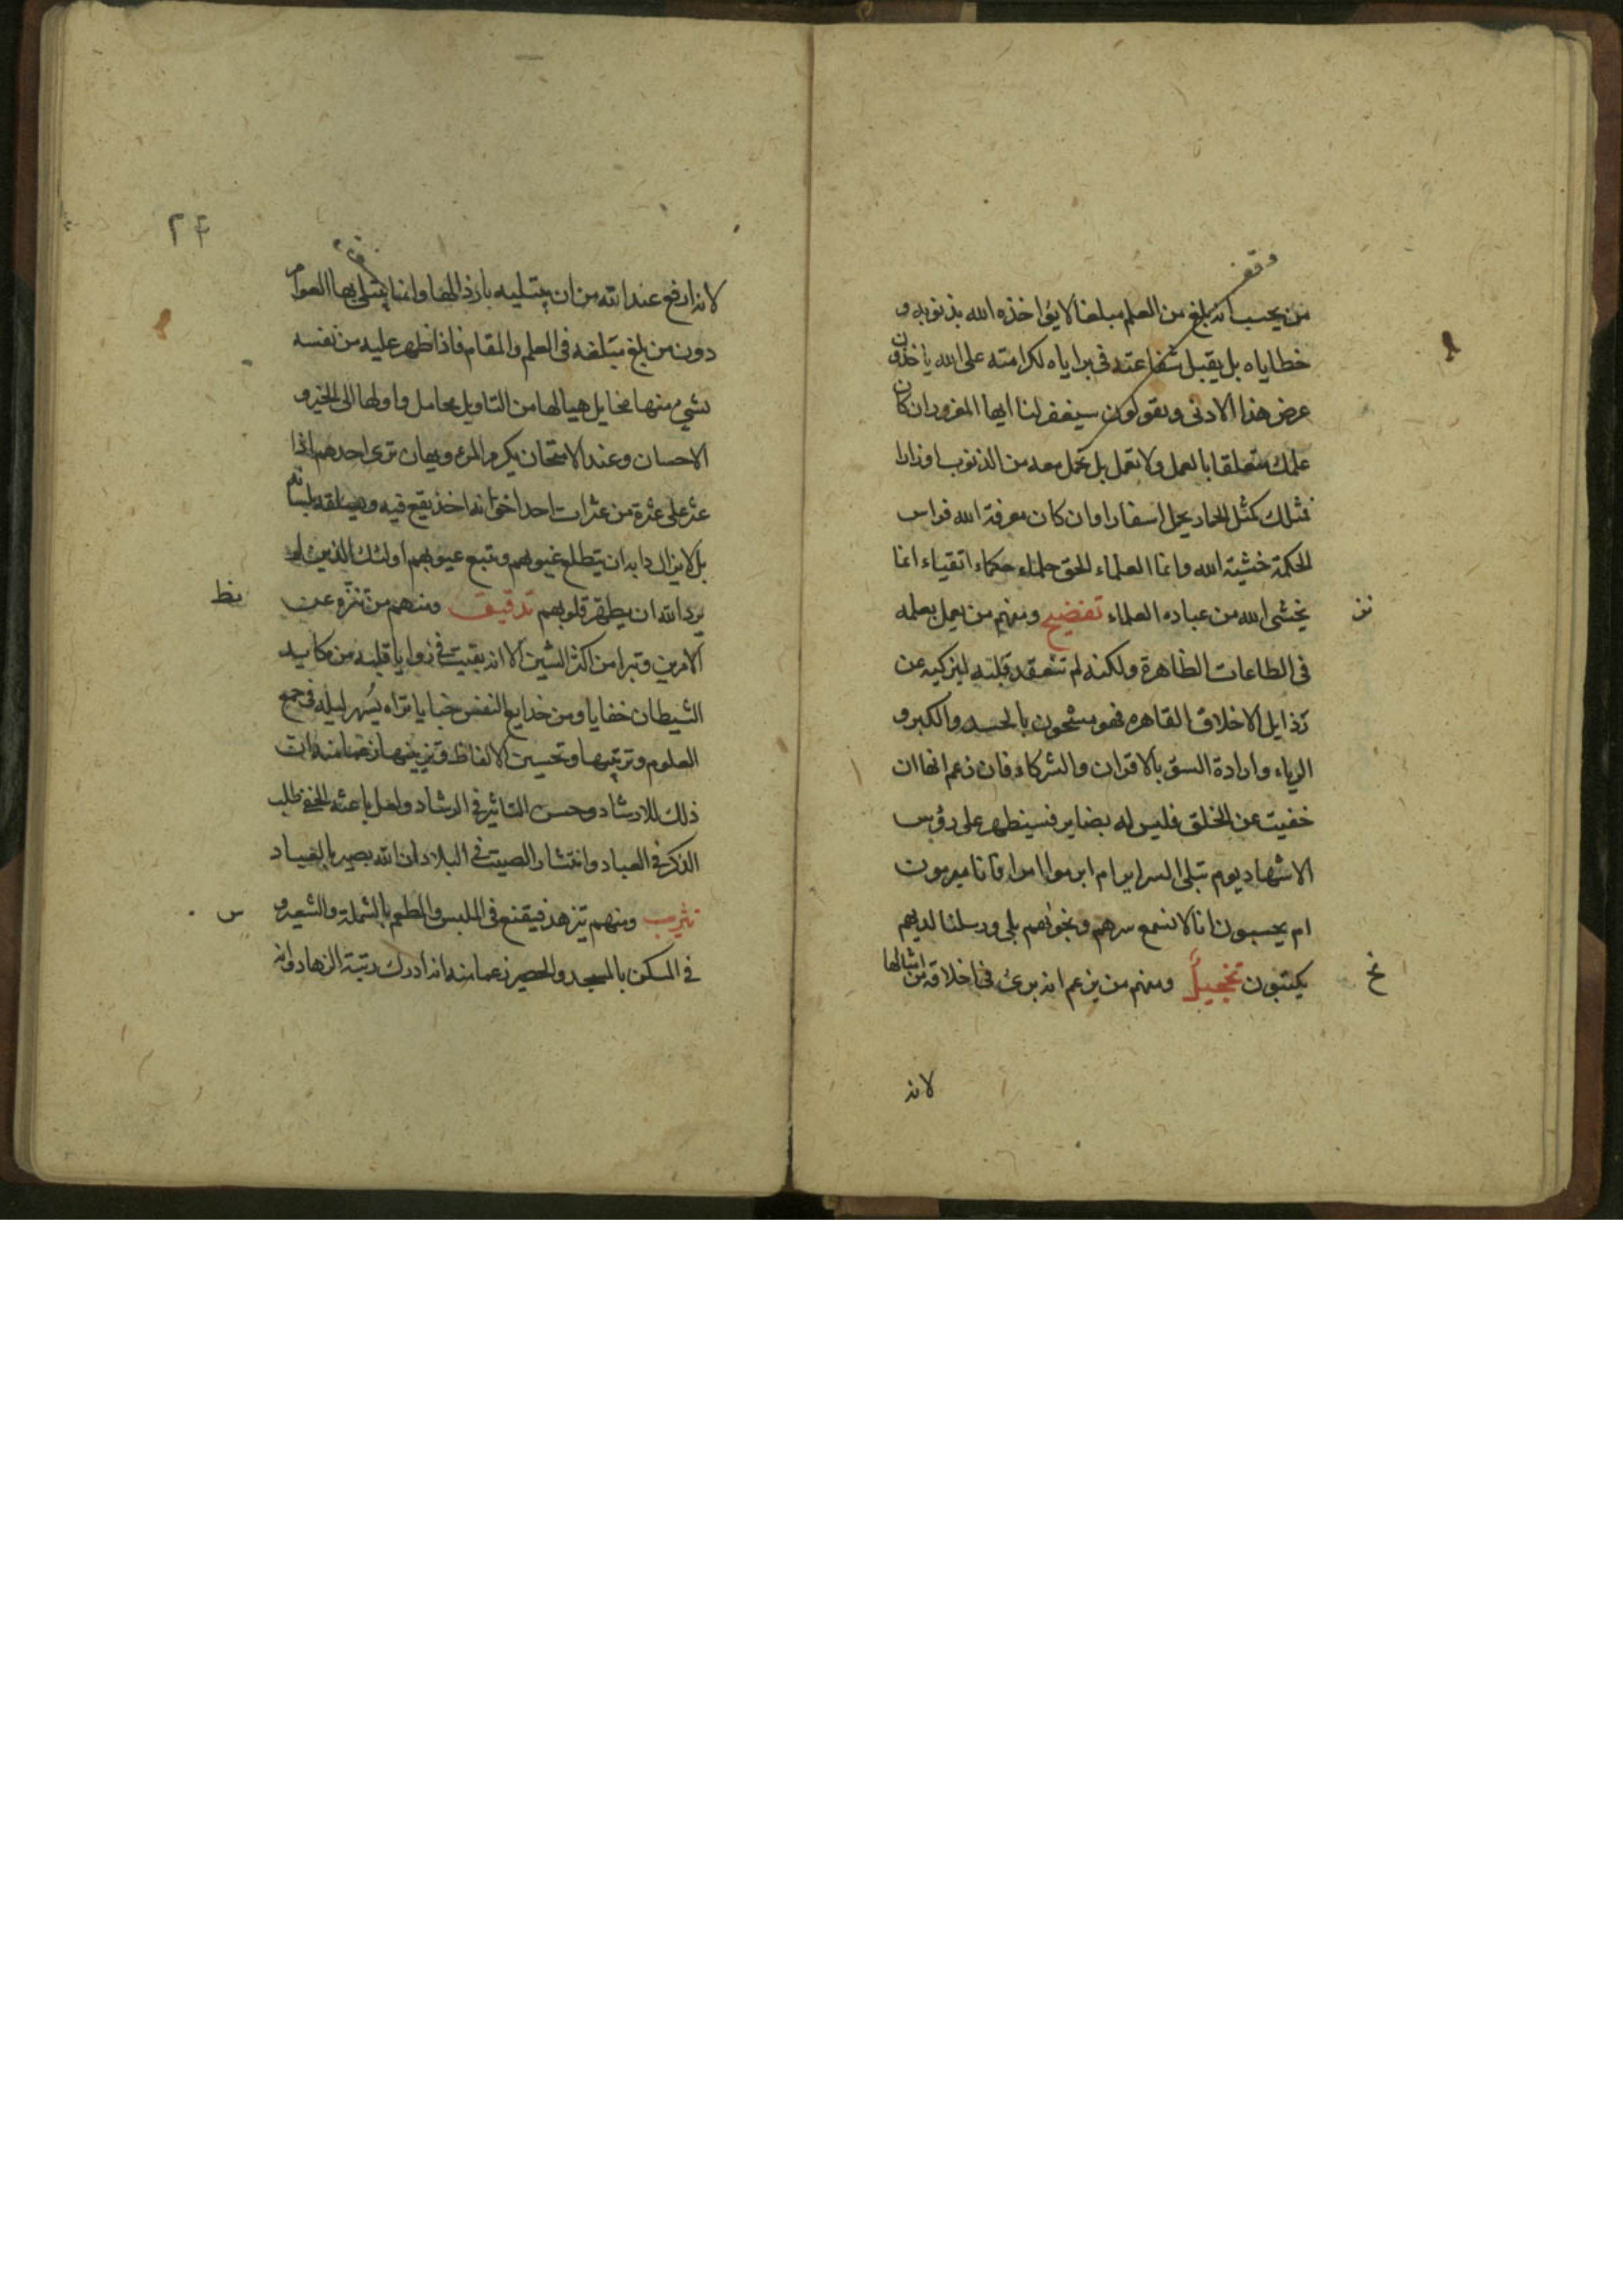 وقف
من يحسب انه بلغ من العلم مبلغا لا يؤاخذه الله بذنوبه و
خطاياه بل يقبل شفاعته في براياه لكرامته على الله ياخذون
عرض هذا الادنى ويقولون سيغفر لنا ايها المغرور ان كان
علمك متعلقا بالعمل ولا تعمل بل تحمل معه من الذنوب اوزارا
فمثلك كمثل الحمار يحمل اسفارا وان كان معرفة الله فراس
الحكمة خشية الله وانما العلماء الحق حلماء حكماء اتقياء انما
يخشى الله من عباده العلماء تفضيح ومنهم من يعمل بعلمه
نز
في الطاعات الظاهرة ولكنه لم يتعقد قلبه ليزكيه عن
رذايل الاخلاق القاهره فهو مشحون بالحسد والكبر و
الرياء وارادة السوء بالاقران والشركاء فان زعم انها ان
خفيت عن الخلق فليس له بضاير فسيظهر على رؤس
الاشهاد يوم تبلى السراير ام ابرموا امرا فانا مبرمون
ام يحسبون انا لا نسمع سرهم ونجواهم بلى ورسلنا لديهم
يكتبون تخجيل ومنهم من يزعم انه برئ في اخلاقه من امثالها
نح
لانه
٢۴
وقف
لانه ارفع عند الله من ان يبتليه بارذالها وانما يبتلى بها العوام
دون من بلغ مبلغه في العلم والمقام فاذا ظهر عليه من نفسه
شيء منها مخايل هيا لها من التاويل محامل واولها الى الخير و
الاحسان وعند الامتحان يكرم المرء ويهان ترى احدهم اذا
عثر على عثرة من عثرات احد اخوانه اخذ يقع فيه ويسلقه بلسانه
بل لا يزال دابه ان يتطلع غيوبهم ويتبع عيوبهم اولئك الذين لم
يرد الله ان يطهر قلوبهم تدقيق ومنهم من تنزه عن
نط
الامرين وتبرا من اكثر الشين الا انه بقيت في زوايا قلبه من مكايد
الشيطان خفايا ومن خدايع النفس خبايا تراه يسهر ليله في جمع
العلوم وترتيبها وتحسين الالفاظ وتزيينها زعما منه ان
ذلك للارشاد وحسن التاثير في الرشاد ولعل باعثه الخفي طلب
الذكر في العباد وانتشار الصيت في البلاد ان الله بصير بالعباد
تثريب ومنهم تزهد فيقنع في الملبس والمطعم بالشملة والشعير و
س
في المسكن بالمسجد والحصير زعما منه انه ادرك رتبة الزهاد وانه